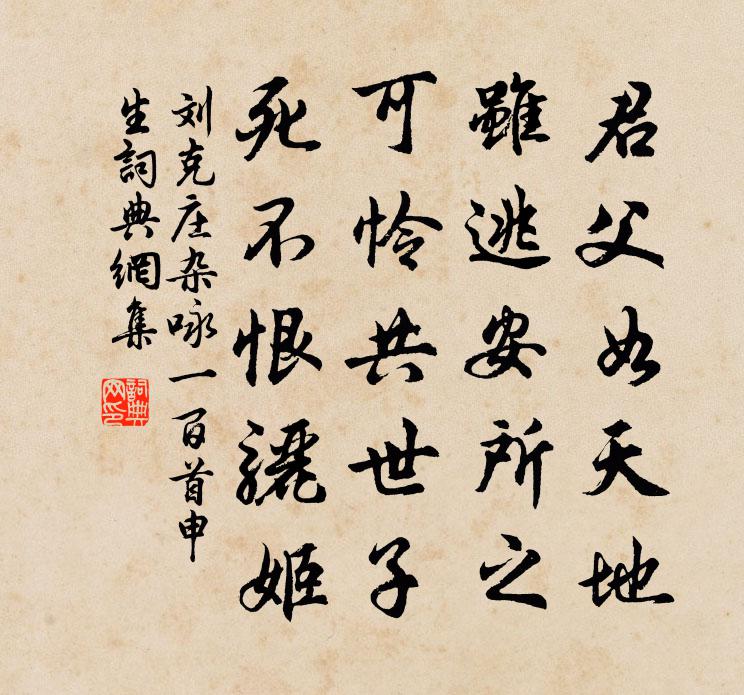 君父如天地
雖逃安所之
可怜共世子
死不恨驪姬
刘克庄杂咏一百首申
生詞典網集
詞典
网印